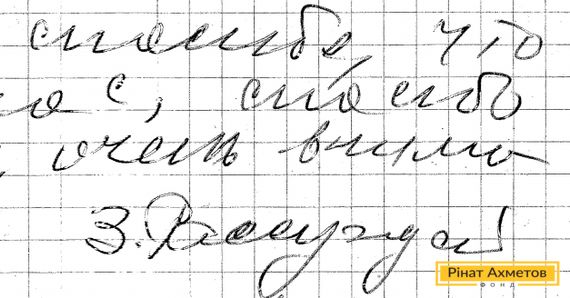 спасибо, что
нас, спасибо
очень внима
З.
Рінат Ахметов
ФОНД